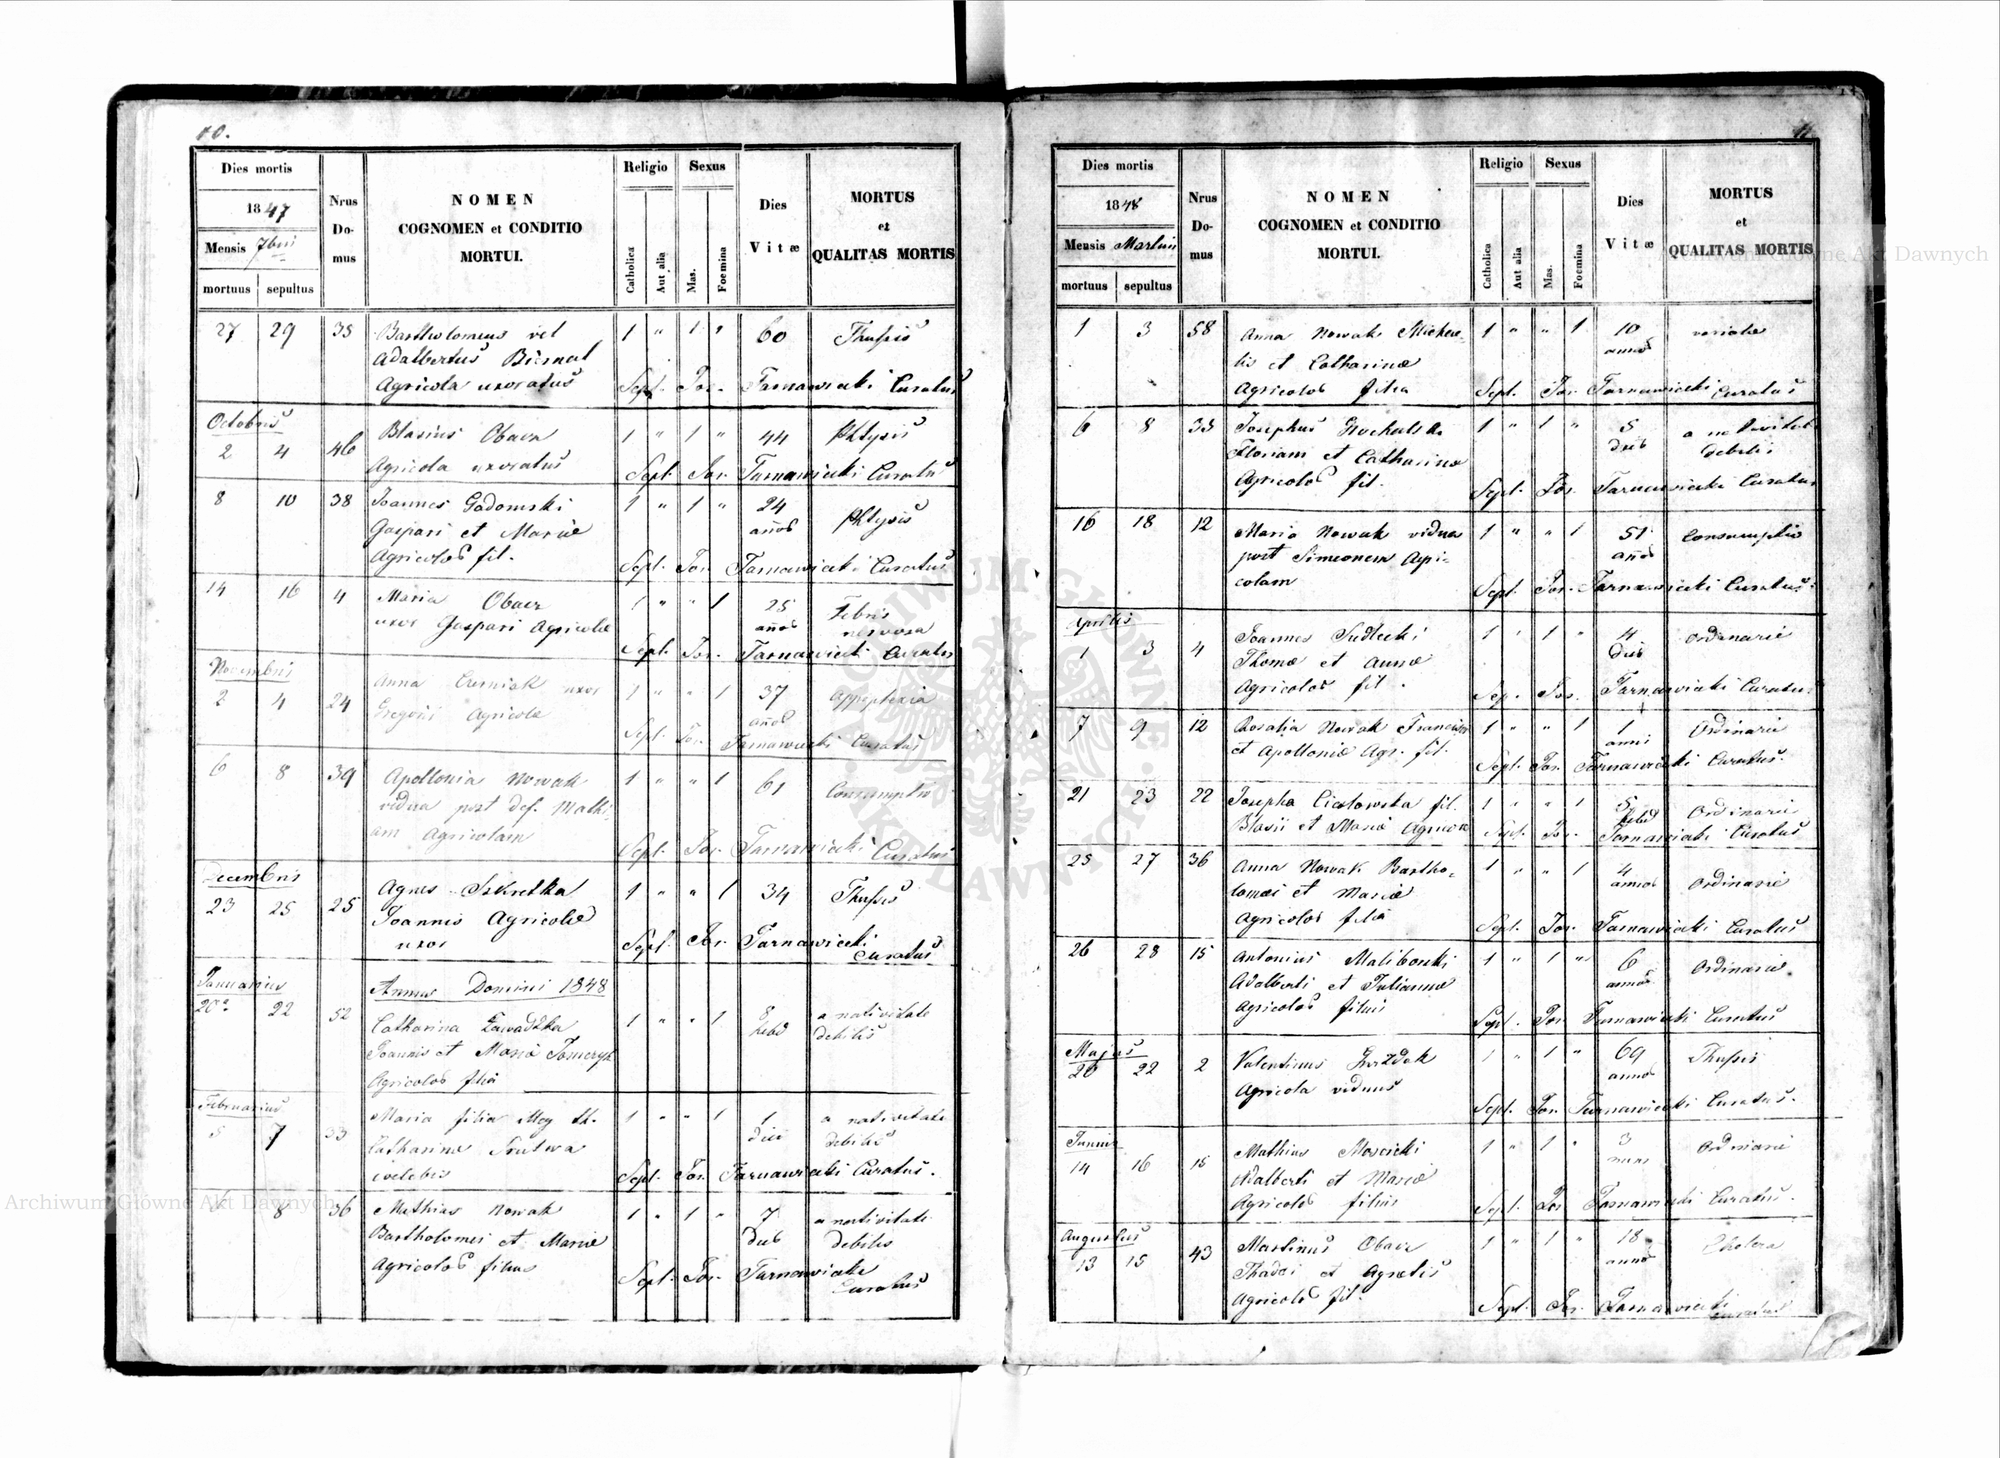 10.
Dies mortis
1847
Mensis 7bris
mortuus sepultus
Nrus Do- mus
NOMEN
COGNOMEN et CONDITIO
MORTUI.
Religio
Catholica
Aut alia
Sexus
Mas.
Foemina
Dies
Vitæ
MORTUS
et
QUALITAS MORTIS
27 29 35 Bartholomeus vel 1 " 1 " 60 Thusis
Adalbertus Biernat
Agricola uxoratus Sept. Jos. Tarnawiecki Curatus
Octobris
2 4 46 Blasius Obacz 1 " 1 " 44 Phtysis
Agricola uxoratus Sept. Jos. Tarnawiecki Curatus
8 10 38 Joannes Gadomski 1 " 1 " 24 Phtysis
Gaspari et Mariæ años
Agricolos fil. Sept. Jos. Tarnawiecki Curatus
14 16 4 Maria Obacz 1 " " 1 25 Febris
uxor Gaspari Agricolæ años nervosa
Sept. Jos. Tarnawiecki Curatus
Novembris
2 4 24 Anna uxor 1 " " 1 37 Appoplexia
Gregorii Agricolæ años
Sept. Jos. Tarnawiecki Curatus
6 8 39 Apollonia Nowak 1 " " 1 61 Consumptio
vidua post def. Mathi-
am Agricolam Sept. Jos. Tarnawiecki Curatus
Decembris
23 25 25 Agnes Szkretka 1 " " 1 34 Thusis
Joannis Agricolæ
uxor Sept. Jos. Tarnawiecki Curatus
Januarius Annus Domini 1848
20 22 52 Catharina Zawadzka 1 " " 1 8 a nativitate
Joannis et Maria hebd debilis
Agricolos filia
Februarius
5 7 33 Maria filia 1 " " 1 1 a nativitate
Catharinæ Trutwa diei debilis
Sept. Jos. Tarnawiecki Curatus.
6 8 36 Mathias Nowak 1 " 1 " 7 a nativitate
Bartholomei et Mariæ dieb debilis
Agricolos filius Sept. Jos. Tarnawiecki Curatus
11
Dies mortis
1848
Mensis Martius
mortuus sepultus
Nrus Do- mus
NOMEN
COGNOMEN et CONDITIO
MORTUI.
Religio
Catholica
Aut alia
Sexus
Mas.
Foemina
Dies
Vitæ
MORTUS
et
QUALITAS MORTIS
1 3 58 Anna Nowak Michae- 1 " " 1 10 variolæ
lis et Catharinæ annos
Agricolos filia Sept. Jos. Tarnawiecki Curatus
6 8 33 Josephus 1 " 1 " 5 a nativitate
Floriani et Catharinæ dieb debilis
Agricolos fil. Sept. Jos. Tarnawiecki Curatus
16 18 12 Maria Nowak vidua 1 " " 1 51 Consumptio
post Simeonem Agri- años
colam Sept. Jos. Tarnawiecki Curatus.
Aprilis
1 3 4 Joannes Siedlecki 1 " 1 " 4 Ordinarie
Thomæ et Annæ dieb
Agricolos fil. Sep. Jos. Tarnawiecki Curatus
7 9 12 Rosalia Nowak Francisci 1 " " 1 1 Ordinarie
et Apolloniæ Agr. fil. anni
Sept. Jos. Tarnawiecki Curatus.
21 23 22 Josepha Ciesłowska fil. 1 " " 1 5 Ordinarie
Blasii et Maria Agricol hebd
Sept. Jos. Tarnawiecki Curatus
25 27 36 Anna Nowak Bartho- 1 " " 1 4 Ordinarie
lomæi et Mariæ annos
Agricolos filia Sept. Jos. Tarnawiecki Curatus
26 28 15 Antonius Maliborski 1 " 1 " 6 Ordinarie
Adalberti et Juliannæ annos
Agricolos filius Sept. Jos. Tarnawiecki Curatus
Majus
20 22 2 Valentinus 1 " 1 " 69 Thusis
Agricola viduus annos
Sept. Jos. Tarnawiecki Curatus.
Junius
14 16 15 Mathias Moscicki 1 " 1 " 3 Ordinarie
Adalberti et Mariæ mens
Agricolos filius Sept. Jos. Tarnawiecki Curatus.
Augustus
13 15 43 Martinus Obacz 1 " 1 " 18 Cholera
Thadei et Agnetis annos
Agricolos fil. Sept. Jos. Tarnawiecki Curatus
Archiwum Główne Akt Dawnych
Archiwum Główne Akt Dawnych
ARCHIWUM GŁÓWNE AKT DAWNYCH